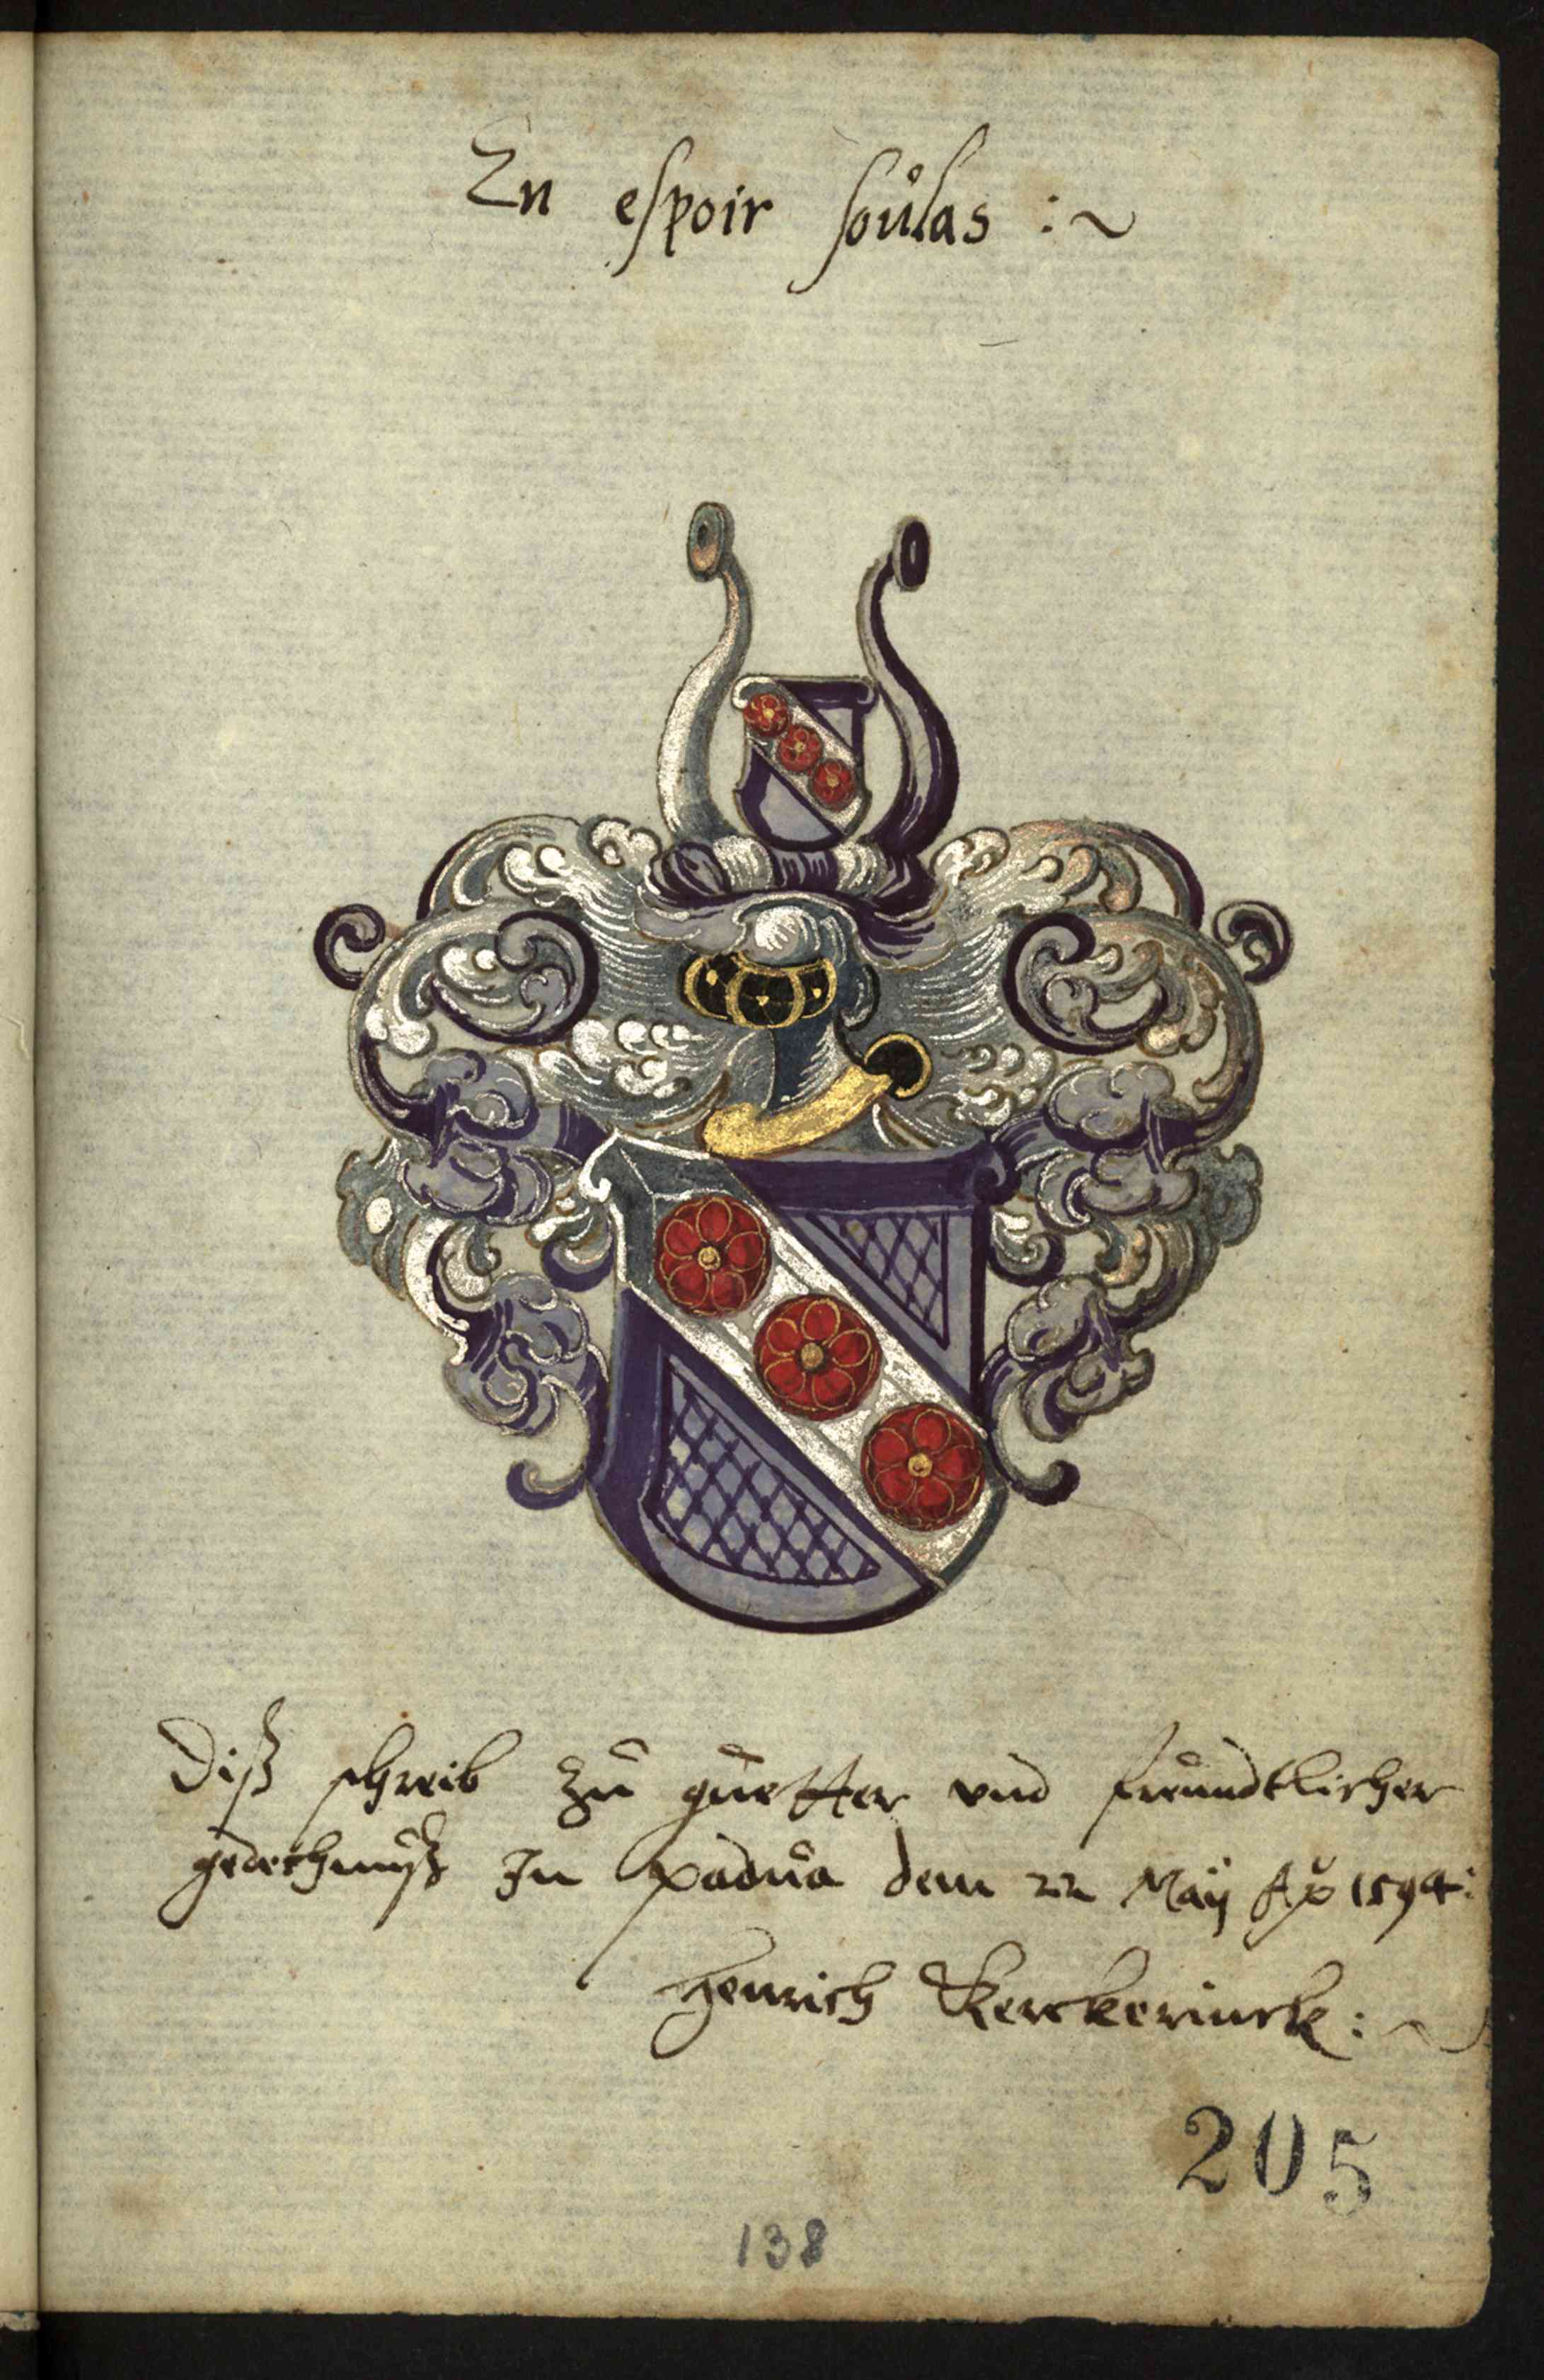 En espoir soulas :~
Diß schreib zu guetter vnd freundtlicher
gedechnuß In Padua dem 22 Maÿ Ao 1594:
Henrich Kerckerinck :~
205
138